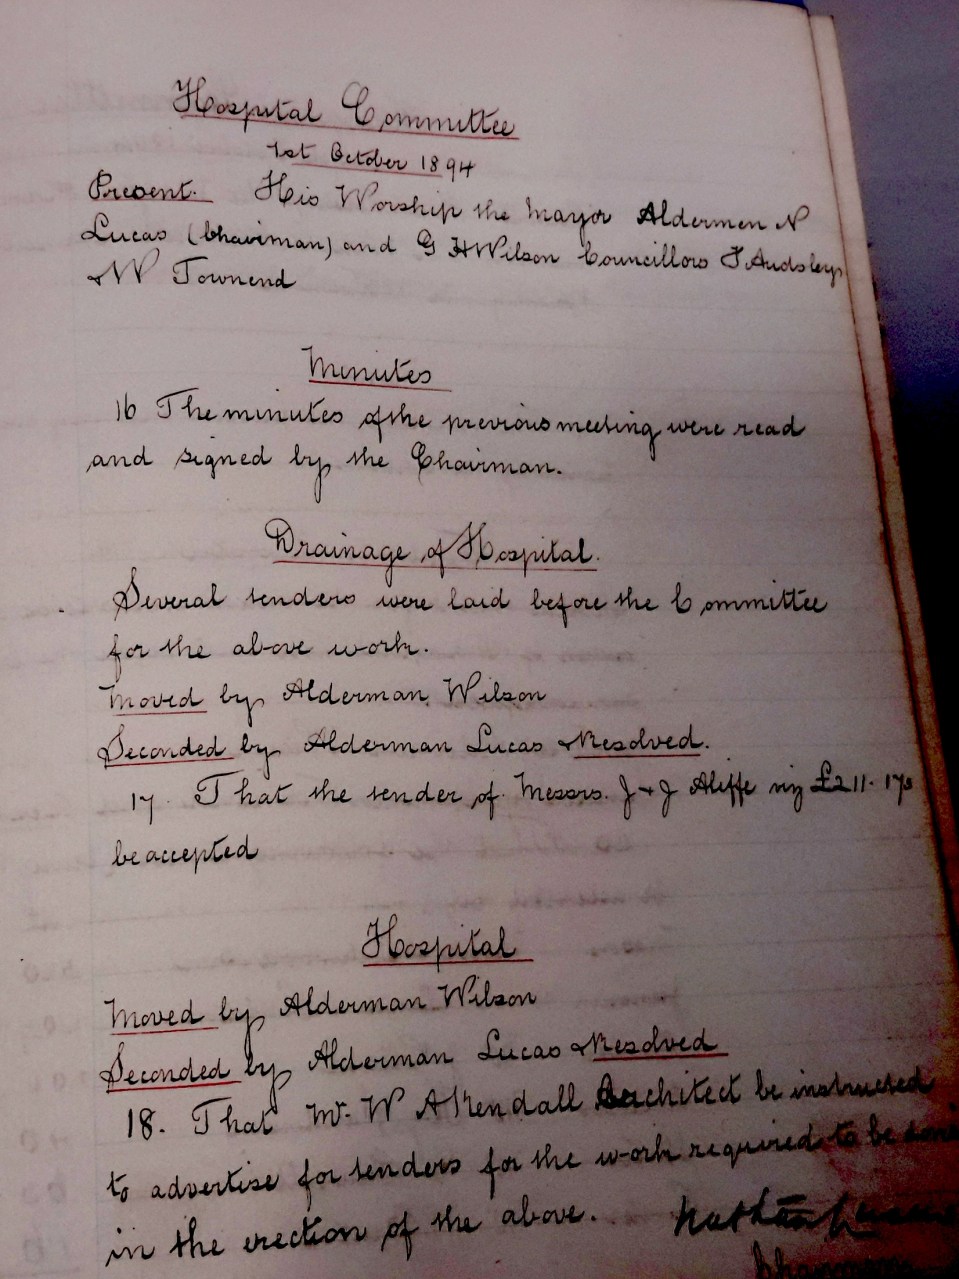 Hospital Committee
1st October 1894
Present. His Worship the Mayor Aldermen N
Lucas (Chairman) and G H Wilson Councillors F Audsley
W Townend
Minutes
16 The minutes of the previous meeting were read
and signed by the Chairman.
Drainage of Hospital.
Several tenders were laid before the Committee
for the above work.
Moved by Alderman Wilson
Seconded by Alderman Lucas & Resolved.
17. That the tender of Messrs. J & J Aliffe viz £211. 17s
be accepted
Hospital
Moved by Alderman Wilson
Seconded by Alderman Lucas & Resolved
18. That Mr. W A Kendall Architect be instructed
to advertise for tenders for the work required to be done
in the erection of the above.
Nathan Lucas
Chairman